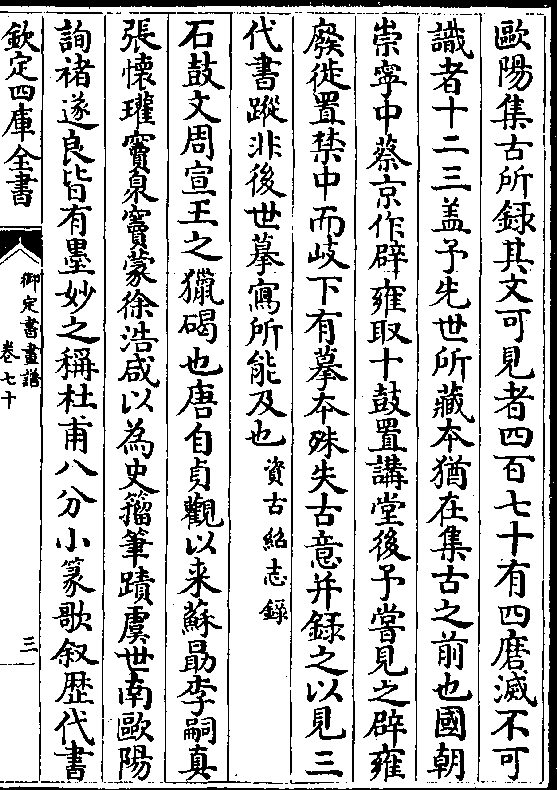 歐陽集古所録其文可見者四百七十有四磨滅不可
識者十二三盖予先世所藏本猶在集古之前也國朝
崇寧中蔡京作辟雍取十鼓置講堂後予嘗見之辟雍
廢徙置禁中而岐下有摹本殊失古意并録之以見三
代書蹤非後世摹寫所能及也資古紹志錄
石鼓文周宣王之獵碣也唐自貞觀以来蘇勗李嗣真
張懷瓘竇泉竇蒙徐浩咸以為史籀筆蹟虞世南歐陽
詢禇遂良皆有墨妙之稱杜甫八分小篆歌叙歴代書
欽定四庫全書
御定書畫譜
卷七十
三